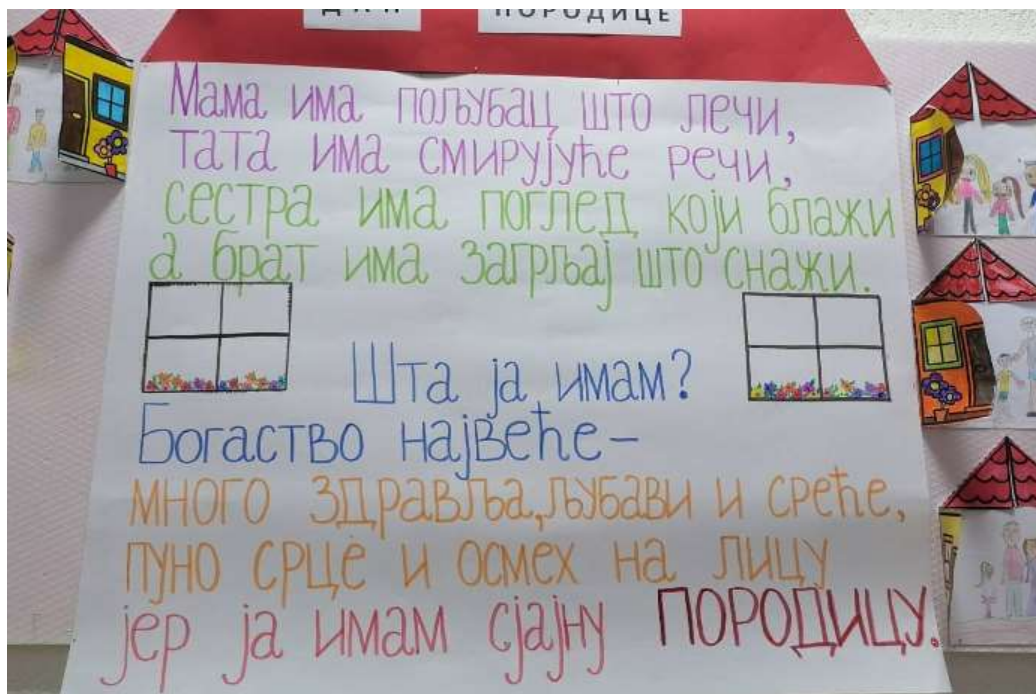 ДАН ПОРОДИЦЕ
Мама има пољубац што лечи,
тата има смирујуће речи,
сестра има поглед који блажи
а брат има загрљај што снажи.
Шта ја имам?
Богаство највеће–
много здравља, љубави и среће,
пуно срце и осмех на лицу
јер ја имам сјајну ПОРОДИЦУ.